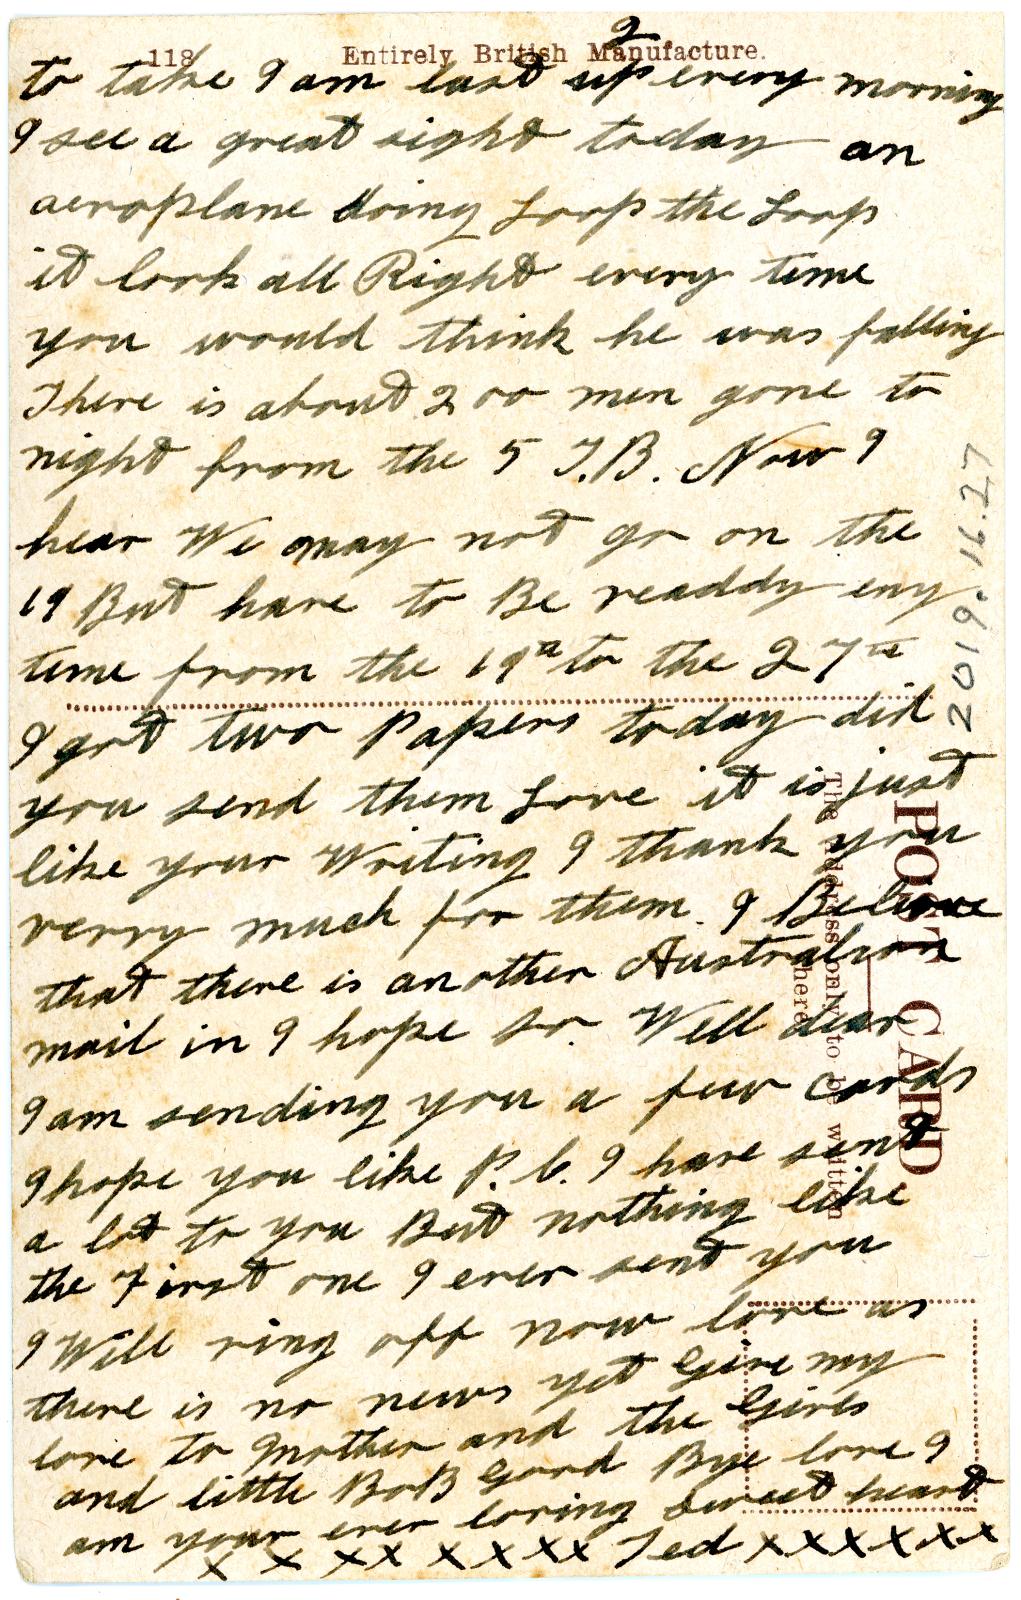 2
118 Entirely British Manufacture.
to take I am last up every morning
I see a great sight today an
aeroplane doing Loop the Loop
it look all Right every time
you would think he was falling
There is about 200 men gone to
night from the 5 T.B. Now I
hear We may not go on the
19 But have to Be readdy eny
time from the 19th to the 27th
I got two Papers today did
you send them Love it is just
like your Writing I thank you
verry much for them. I Believe
that there is another Australian
mail in I hope so. Well dear
I am sending you a few cards
I hope you like P.C. I have sent
a lot to you But nothing like
the First one I ever sent you
I Will ring off now love as
there is no news yet Give my
love to Mother and the Girls
and little BoB Good Bye love I
am your ever loving sweet heart
x x xx x x xx Ted xxxxxx
2019.16.27
POST CARD
The address only to be written
here